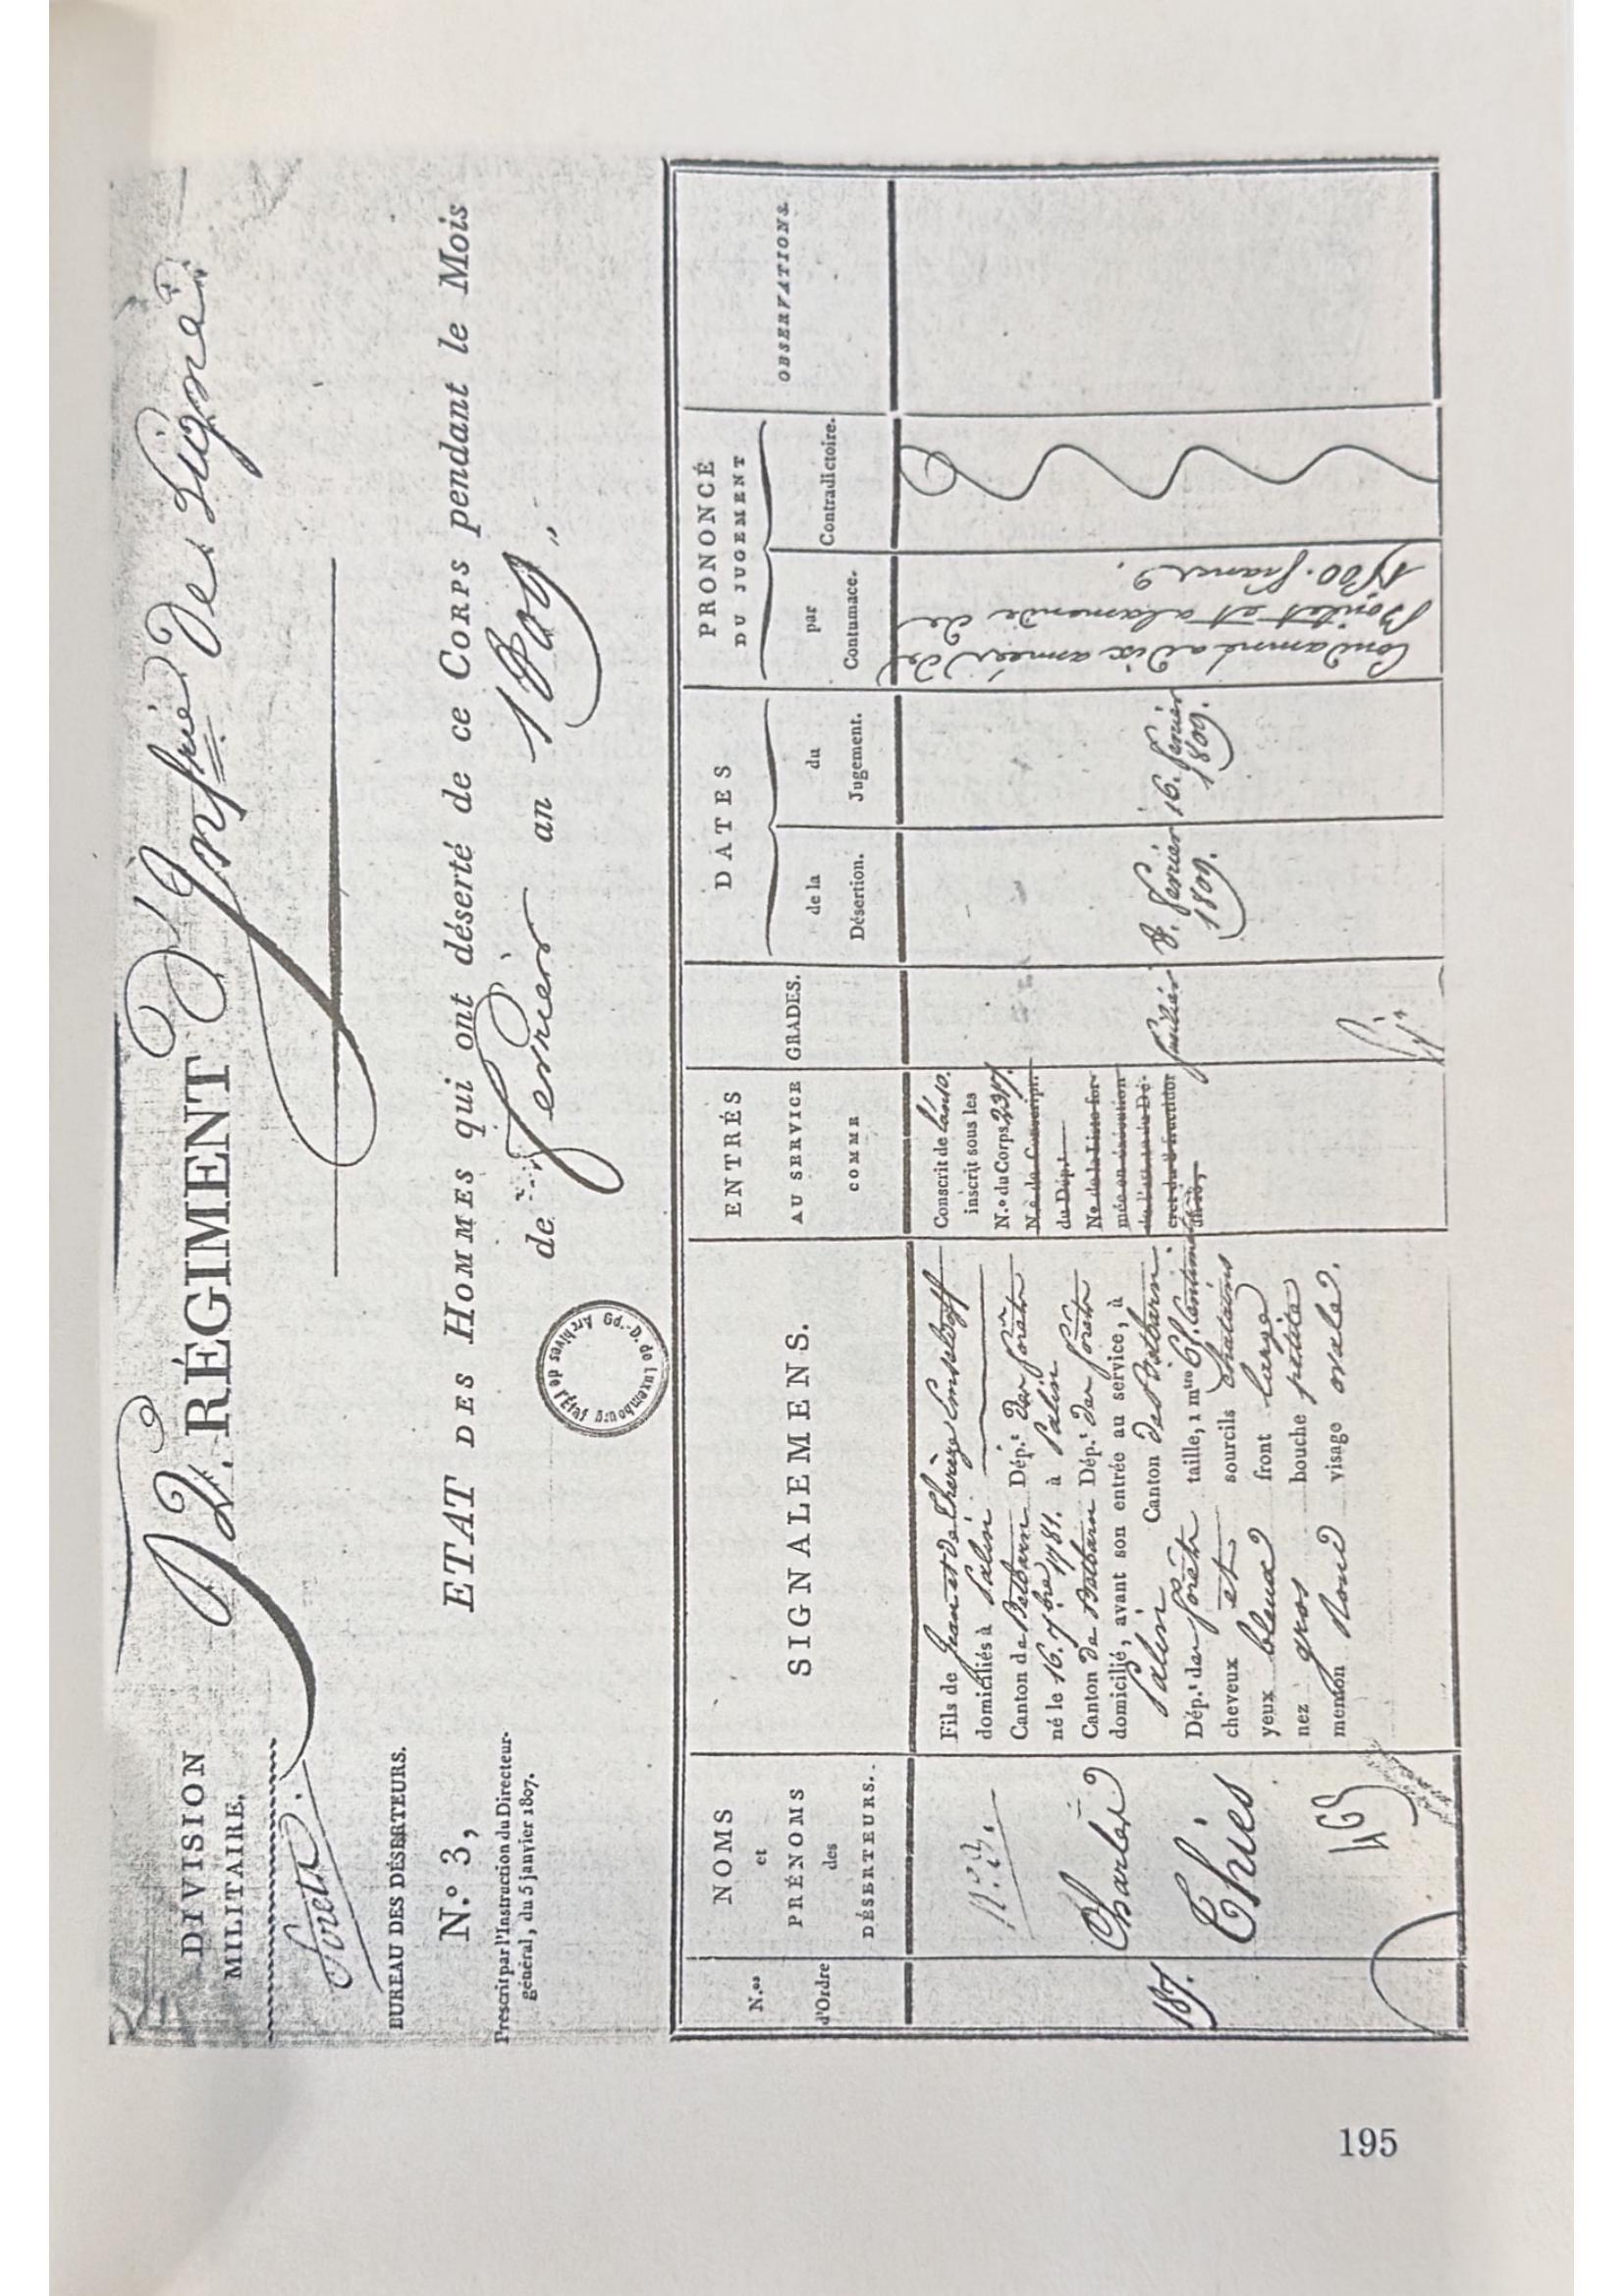 DIVISION
MILITAIRE.
forets.
BUREAU DES DÉSERTEURS.
N.º 3,
Prescrit par l'Instruction du Directeur-
général, du 5 janvier 1807.
RÉGIMENT D'Infrie De Ligne
ETAT DES HOMMES qui ont déserté de ce CORPS pendant le Mois
de fevrier an 1809,
Archives de l'Etat Gd.-D. de Luxembourg
N.os
d'Ordre
NOMS
et
PRÉNOMS
des
DÉSERTEURS.
SIGNALEMENS.
ENTRÉS
AU SERVICE
COMME
GRADES.
DATES
de la
Désertion.
du
Jugement.
PRONONCÉ
DU JUGEMENT
par
Contumace.
Contradictoire.
OBSERVATIONS.
187.
Nº 3.
Charles
Thies
463
Fils de Jean et de Therese
domiciliés à Salin
Canton de Bettborn Dép.t des forêts
né le 16. 7bre 1781. à Salin
Canton de Bettborn Dép.t des forêts
domicilié, avant son entrée au service, à
Salin Canton de Bettborn.
Dép.t des forêts taille, 1 mtre 61. Centim
cheveux et sourcils Chatains
yeux bleux front large
nez gros bouche petite
menton Rond visage ovale.
Conscrit de l'an 10.
inscrit sous les
N.º du Corps 2317.
N.º de Conscript.
du Dép.t
Nº de la Liste for-
mée en exécution
de l'art. 10 du Dé-
cret du 8 fructidor
an 13,
fusilier
8. fevrier
1809.
16. fevrier
1809.
Condamné a dix années de
Boulet et a lamende de
1500. francs.
195